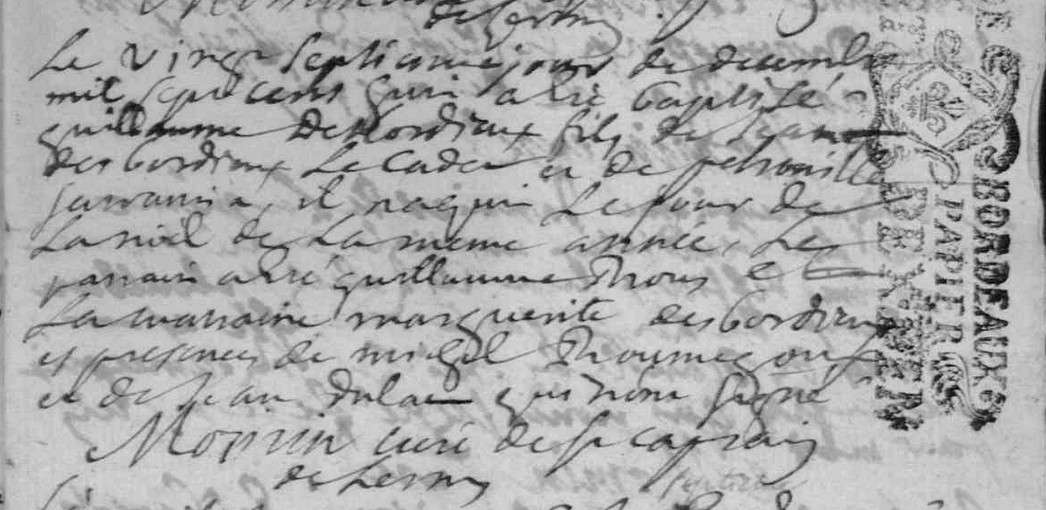 de Lerm
Le vingt septieme jour de decembre
mil sept cens a esté baptisé
guillaume Desbordieux fils de Jean
desbordieux Le Cadet et de petronille
il naquit Le jour de
La noel de La meme année, Le
parrain a esté guillaume et
La marraine marguerite desbordieux
et presences de michel Roumegoux
et de Jean Dulau qui n'ont signé
curé de St caprais
de Lerm
PAPIER
BORDEAUX